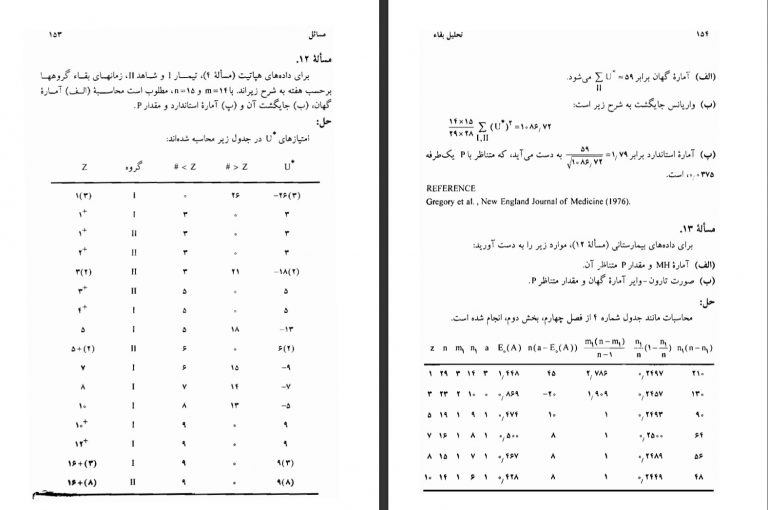 مسائل ۱۵۳
مسألهٔ ۱۲.
برای داده‌های هپاتیت (مسألهٔ ۴)، تیمــار I و شاهد II، زمانهای بقاء گروهها
برحسب هفته به شرح زیراند. با m=۱۴ و n=۱۵، مطلوب است محاسبهٔ (الف) آمارهٔ
گهان، (ب) جایگشت آن و (پ) آمارهٔ استاندارد و مقدار P.
حل:
امتیازهای U* در جدول زیر محاسبه شده‌اند:
Z گروه # < Z # > Z U*
۱(۳) I ۰ ۲۶ −۲۶(۳)
۱+ I ۳ ۰ ۳
۱+ II ۳ ۰ ۳
۲+ II ۳ ۰ ۳
۳(۲) II ۳ ۲۱ −۱۸(۲)
۳+ II ۵ ۰ ۵
۴+ I ۵ ۰ ۵
۵ I ۵ ۱۸ −۱۳
۵+(۲) II ۶ ۰ ۶(۲)
۷ I ۶ ۱۵ −۹
۸ I ۷ ۱۴ −۷
۱۰ I ۸ ۱۳ −۵
۱۰+ I ۹ ۰ ۹
۱۲+ I ۹ ۰ ۹
۱۶+(۳) I ۹ ۰ ۹(۳)
۱۶+(۸) II ۹ ۰ ۹(۸)
۱۵۴ تحلیل بقاء
(الف) آمارهٔ گهان برابر ∑ U* = ۵۹ می‌شود.
II
(ب) واریانس جایگشت به شرح زیر است:
۱۴×۱۵/۲۹×۲۸ ∑ (U*)² = ۱۰۸۶٫۷۲
I,II
(پ) آمارهٔ استاندارد برابر ۵۹/√۱۰۸۶٫۷۲ = ۱٫۷۹ به دست می‌آید، که متناظر با P یک‌طرفه
۰٫۰۳۷۵ است.
REFERENCE
Gregory et al., New England Journal of Medicine (1976).
مسألهٔ ۱۳.
برای داده‌های بیمارستانی (مسألهٔ ۱۲)، موارد زیر را به دست آورید:
(الف) آمارهٔ MH و مقدار P متناظر آن.
(ب) صورت تارون-وایر آمارهٔ گهان و مقدار متناظر P.
حل:
محاسبات مانند جدول شماره ۴ از فصل چهارم، بخش دوم، انجام شده است.
z n m₁ n₁ a E₀(A) n(a−E₀(A)) m₁(n−m₁)/n−1 n₁/n(1−n₁/n) n₁(n−n₁)
۱ ۲۹ ۳ ۱۴ ۳ ۱٫۴۴۸ ۴۵ ۲٫۷۸۶ ۰٫۲۴۹۷ ۲۱۰
۳ ۲۳ ۲ ۱۰ ۰ ۰٫۸۶۹ −۲۰ ۱٫۹۰۹ ۰٫۲۴۵۷ ۱۳۰
۵ ۱۹ ۱ ۹ ۱ ۰٫۴۷۴ ۱۰ ۱ ۰٫۲۴۹۳ ۹۰
۷ ۱۶ ۱ ۸ ۱ ۰٫۵۰۰ ۸ ۱ ۰٫۲۵۰۰ ۶۴
۸ ۱۵ ۱ ۷ ۱ ۰٫۴۶۷ ۸ ۱ ۰٫۲۴۸۹ ۵۶
۱۰ ۱۴ ۱ ۶ ۱ ۰٫۴۲۸ ۸ ۱ ۰٫۲۴۴۹ ۴۸